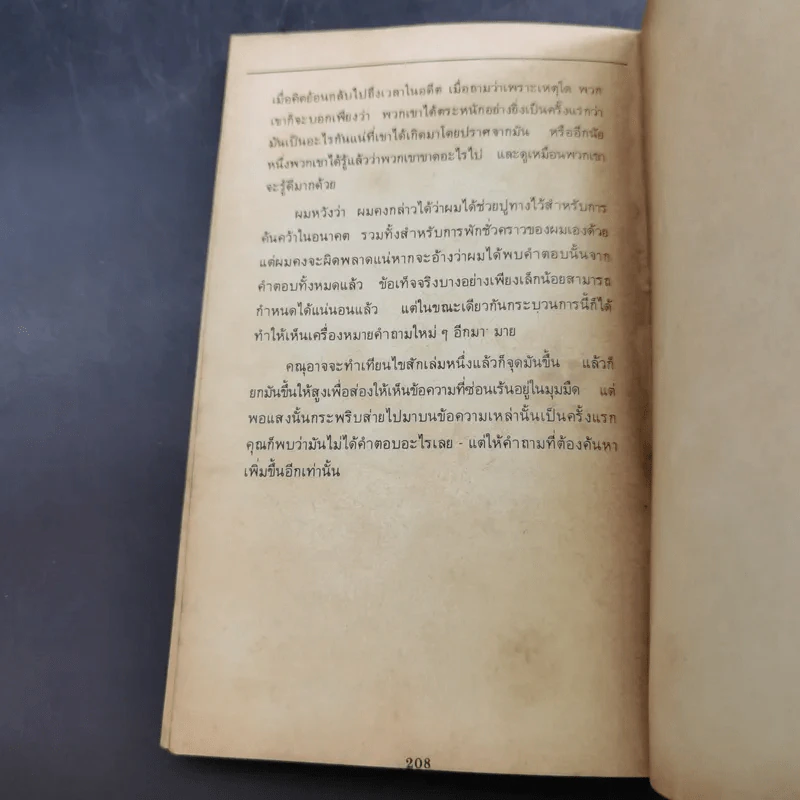 เมื่อคิดย้อนกลับไปถึงเวลาในอดีต เมื่อถามว่าเพราะเหตุใด พวก
เขาก็จะบอกเพียงว่า พวกเขาได้ตระหนักอย่างยิ่งเป็นครั้งแรกว่า
มันเป็นอะไรกันแน่ที่เขาได้เกิดมาโดยปราศจากมัน หรืออีกนัย
หนึ่งพวกเขาได้รู้แล้วว่าพวกเขาขาดอะไรไป และดูเหมือนพวกเขา
จะรู้ดีมากด้วย
ผมหวังว่า ผมคงกล่าวได้ว่าผมได้ช่วยปูทางไว้สำหรับการ
ค้นคว้าในอนาคต รวมทั้งสำหรับการพักชั่วคราวของผมเองด้วย
แต่ผมคงจะผิดพลาดแน่หากจะอ้างว่าผมได้พบคำตอบนั้นจาก
คำตอบทั้งหมดแล้ว ข้อเท็จจริงบางอย่างเพียงเล็กน้อยสามารถ
กำหนดได้แน่นอนแล้ว แต่ในขณะเดียวกันกระบวนการนี้ก็ได้
ทำให้เห็นเครื่องหมายคำถามใหม่ ๆ อีกมา มาย
คุณอาจจะทำเทียนไขสักเล่มหนึ่งแล้วก็จุดมันขึ้น แล้วก็
ยกมันขึ้นให้สูงเพื่อส่องให้เห็นข้อความที่ซ่อนเร้นอยู่ในมุมมืด แต่
พอแสงนั้นกระพริบส่ายไปมาบนข้อความเหล่านั้นเป็นครั้งแรก
คุณก็พบว่ามันไม่ได้คำตอบอะไรเลย - แต่ให้คำถามที่ต้องค้นหา
เพิ่มขึ้นอีกเท่านั้น
208